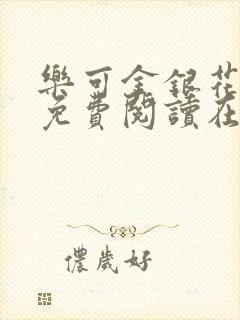 樂可金銀花
免費閱讀在
儂歲好